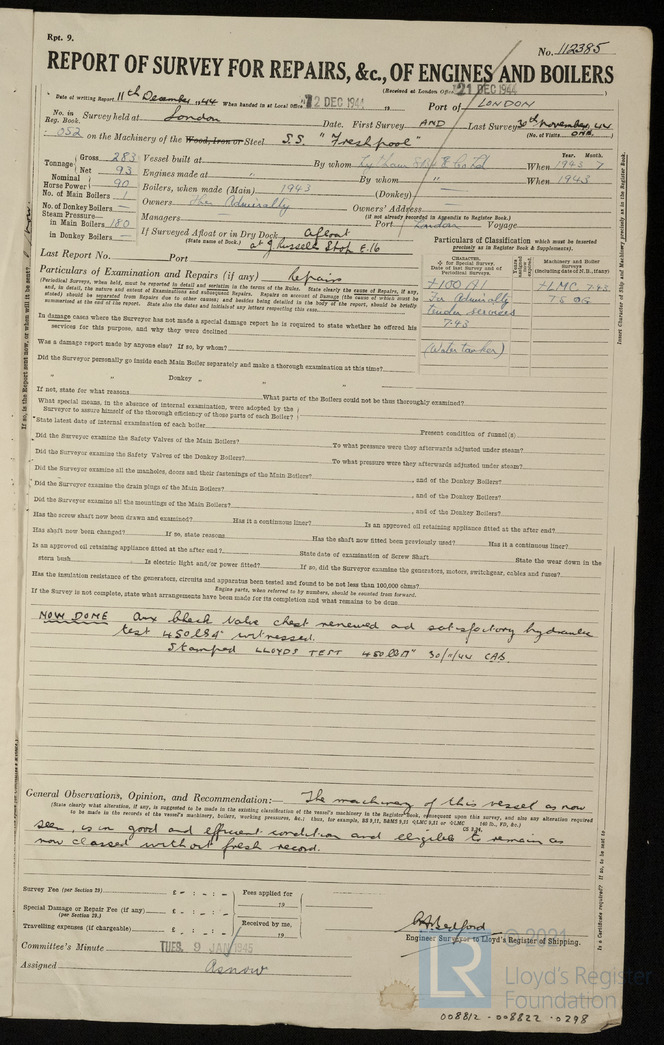 Rpt. 9.
No. 112385
REPORT OF SURVEY FOR REPAIRS, &c., OF ENGINES AND BOILERS
(Received at London Office 21 DEC 1944
Date of writing Report 11th December 1944 When handed in at Local Office 12 DEC 1944 Port of LONDON
No. in Reg. Book. Survey held at London Date. First Survey AND Last Survey 30th November 44
052 on the Machinery of the Wood, Iron or Steel S.S. "Freshpool" (No. of Visits ONE.)
Tonnage Gross 283 Vessel built at By whom When Year. Month. 1943 7
Net 93 Engines made at " By whom " When 1943
Nominal Horse Power 90 Boilers, when made (Main) 1943 (Donkey)
No. of Main Boilers 1 Owners The Admiralty Owners' Address
(if not already recorded in Appendix to Register Book.)
No. of Donkey Boilers — Managers Port London Voyage
Steam Pressure— in Main Boilers 180 If Surveyed Afloat or in Dry Dock Afloat
in Donkey Boilers — (State name of Dock.) at J. Russells Shop E.16
Particulars of Classification which must be inserted precisely as in Register Book & Supplements).
Last Report No. Port
CHARACTER. ✠ for Special Survey. Date of last Survey and of Periodical Surveys.
Years assigned now expired.
Machinery and Boiler Surveys (including date of N.B., if any)
✠100A1 ✠LMC 7.43
For Admiralty TS OG
Tender services
7.43
(Water Tanker)
Particulars of Examination and Repairs (if any) Repairs
(Periodical Surveys, when held, must be reported in detail and seriatim in the terms of the Rules. State clearly the cause of Repairs, if any,
and, in detail, the nature and extent of Examinations and subsequent Repairs. Repairs on account of Damage (the cause of which must be
stated) should be separated from Repairs due to other causes; and besides being detailed in the body of the report, should be briefly
summarised at the end of the report. State also the dates and initials of any letters respecting this case.
In damage cases where the Surveyor has not made a special damage report he is required to state whether he offered his
services for this purpose, and why they were declined
Was a damage report made by anyone else? If so, by whom?
Did the Surveyor personally go inside each Main Boiler separately and make a thorough examination at this time?
" " Donkey " " "
If not, state for what reasons What parts of the Boilers could not be thoroughly examined?
What special means, in the absence of internal examination, were adopted by the
Surveyor to assure himself of the thorough efficiency of those parts of each Boiler?
State latest date of internal examination of each boiler Present condition of funnel(s)
Did the Surveyor examine the Safety Valves of the Main Boilers? To what pressure were they afterwards adjusted under steam?
Did the Surveyor examine the Safety Valves of the Donkey Boilers? To what pressure were they afterwards adjusted under steam?
Did the Surveyor examine all the manholes, doors and their fastenings of the Main Boilers? , and of the Donkey Boilers?
Did the Surveyor examine the drain plugs of the Main Boilers? , and of the Donkey Boilers?
Did the Surveyor examine all the mountings of the Main Boilers? , and of the Donkey Boilers?
Has the screw shaft now been drawn and examined? Has it a continuous liner? Is an approved oil retaining appliance fitted at the after end?
Has shaft now been changed? If so, state reasons Has the shaft now fitted been previously used? Has it a continuous liner?
Is an approved oil retaining appliance fitted at the after end? State date of examination of Screw Shaft State the wear down in the
stern bush Is electric light and/or power fitted? If so, did the Surveyor examine the generators, motors, switchgear, cables and fuses?
Has the insulation resistance of the generators, circuits and apparatus been tested and found to be not less than 100,000 ohms?
Engine parts, when referred to by numbers, should be counted from forward.
If the Survey is not complete, state what arrangements have been made for its completion and what remains to be done
NOW DONE Aux check valve chest renewed and satisfactory hydraulic
test 450 lbs□" witnessed.
Stamped LLOYDS TEST 450 lb□" 30/11/44 CAB.
General Observations, Opinion, and Recommendation:— The machinery of this vessel as now
(State clearly what alteration, if any, is suggested to be made in the existing classification of the vessel's machinery in the Register Book, consequent upon this survey, and also any alteration required
to be made in the records of the vessel's machinery, boilers, working pressures, &c.) thus, for example,
seen, is in good and efficient condition and eligible to remain as
now classed without fresh record.
Survey Fee (per Section 29) £ - : - : - Fees applied for
19
Special Damage or Repair Fee (if any) (per Section 29.) £ - : - : -
Travelling expenses (if chargeable) £ - : - : - Received by me,
19
CABedford
Engineer Surveyor to Lloyd's Register of Shipping.
Committee's Minute TUES. 9 JAN 1945
Assigned As now
© 2021
LR
Lloyd's Register
Foundation
008812-008822-0298
Insert Character of Ship and Machinery precisely as in the Register Book.
Is a Certificate required? If so, to be sent to